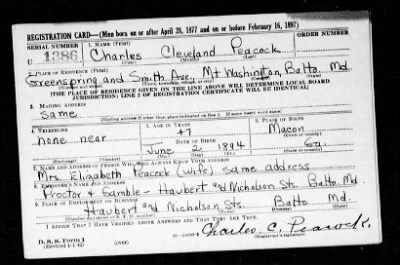 REGISTRATION CARD—(Men born on or after April 28, 1877 and on or before February 16, 1897)
SERIAL NUMBER
1. NAME (Print)
ORDER NUMBER
U 1386
Charles Cleveland Peacock
(First) (Middle) (Last)
2. PLACE OF RESIDENCE (Print)
Greenspring and Smith Ave, Mt Washington, Balto. Md.
(Number and street) (Town, township, village, or city) (County) (State)
[THE PLACE OF RESIDENCE GIVEN ON THE LINE ABOVE WILL DETERMINE LOCAL BOARD
JURISDICTION; LINE 2 OF REGISTRATION CERTIFICATE WILL BE IDENTICAL]
3. MAILING ADDRESS
Same
[Mailing address if other than place indicated on line 2. If same insert word same]
4. TELEPHONE
5. AGE IN YEARS
6. PLACE OF BIRTH
none near
47
Macon
DATE OF BIRTH
(Town or county)
June 2 1894
Ga.
(Exchange) (Number)
(Mo.) (Day) (Yr.)
(State or country)
7. NAME AND ADDRESS OF PERSON WHO WILL ALWAYS KNOW YOUR ADDRESS
Mrs. Elizabeth Peacock (wife) same address
8. EMPLOYER'S NAME AND ADDRESS
Proctor & Gamble - Haubert and Nicholson Sts. Balto. Md.
9. PLACE OF EMPLOYMENT OR BUSINESS
Haubert and Nicholson Sts. Balto. Md.
(Number and street or R. F. D. number) (Town) (County) (State)
I AFFIRM THAT I HAVE VERIFIED ABOVE ANSWERS AND THAT THEY ARE TRUE.
D. S. S. Form 1
(Revised 4-1-42) (over)
Charles C. Peacock.
(Registrant's signature)